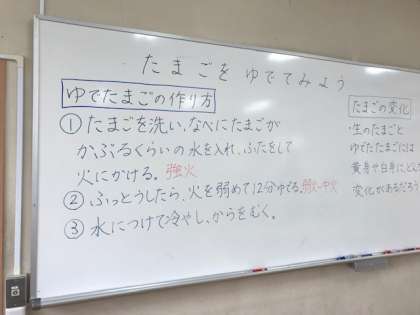 たまごを ゆでてみよう
ゆでたまごの作り方
①たまごを洗い、なべにたまごが
かぶるくらいの水を入れ、ふたをして
火にかける。強火
②ふっとうしたら、火を弱めて12分ゆでる。弱火~中火
③水につけて冷やし、からをむく。
たまごの変化
・生のたまごと
ゆでたたまごには
黄身や白身にどん
変化があるだろう